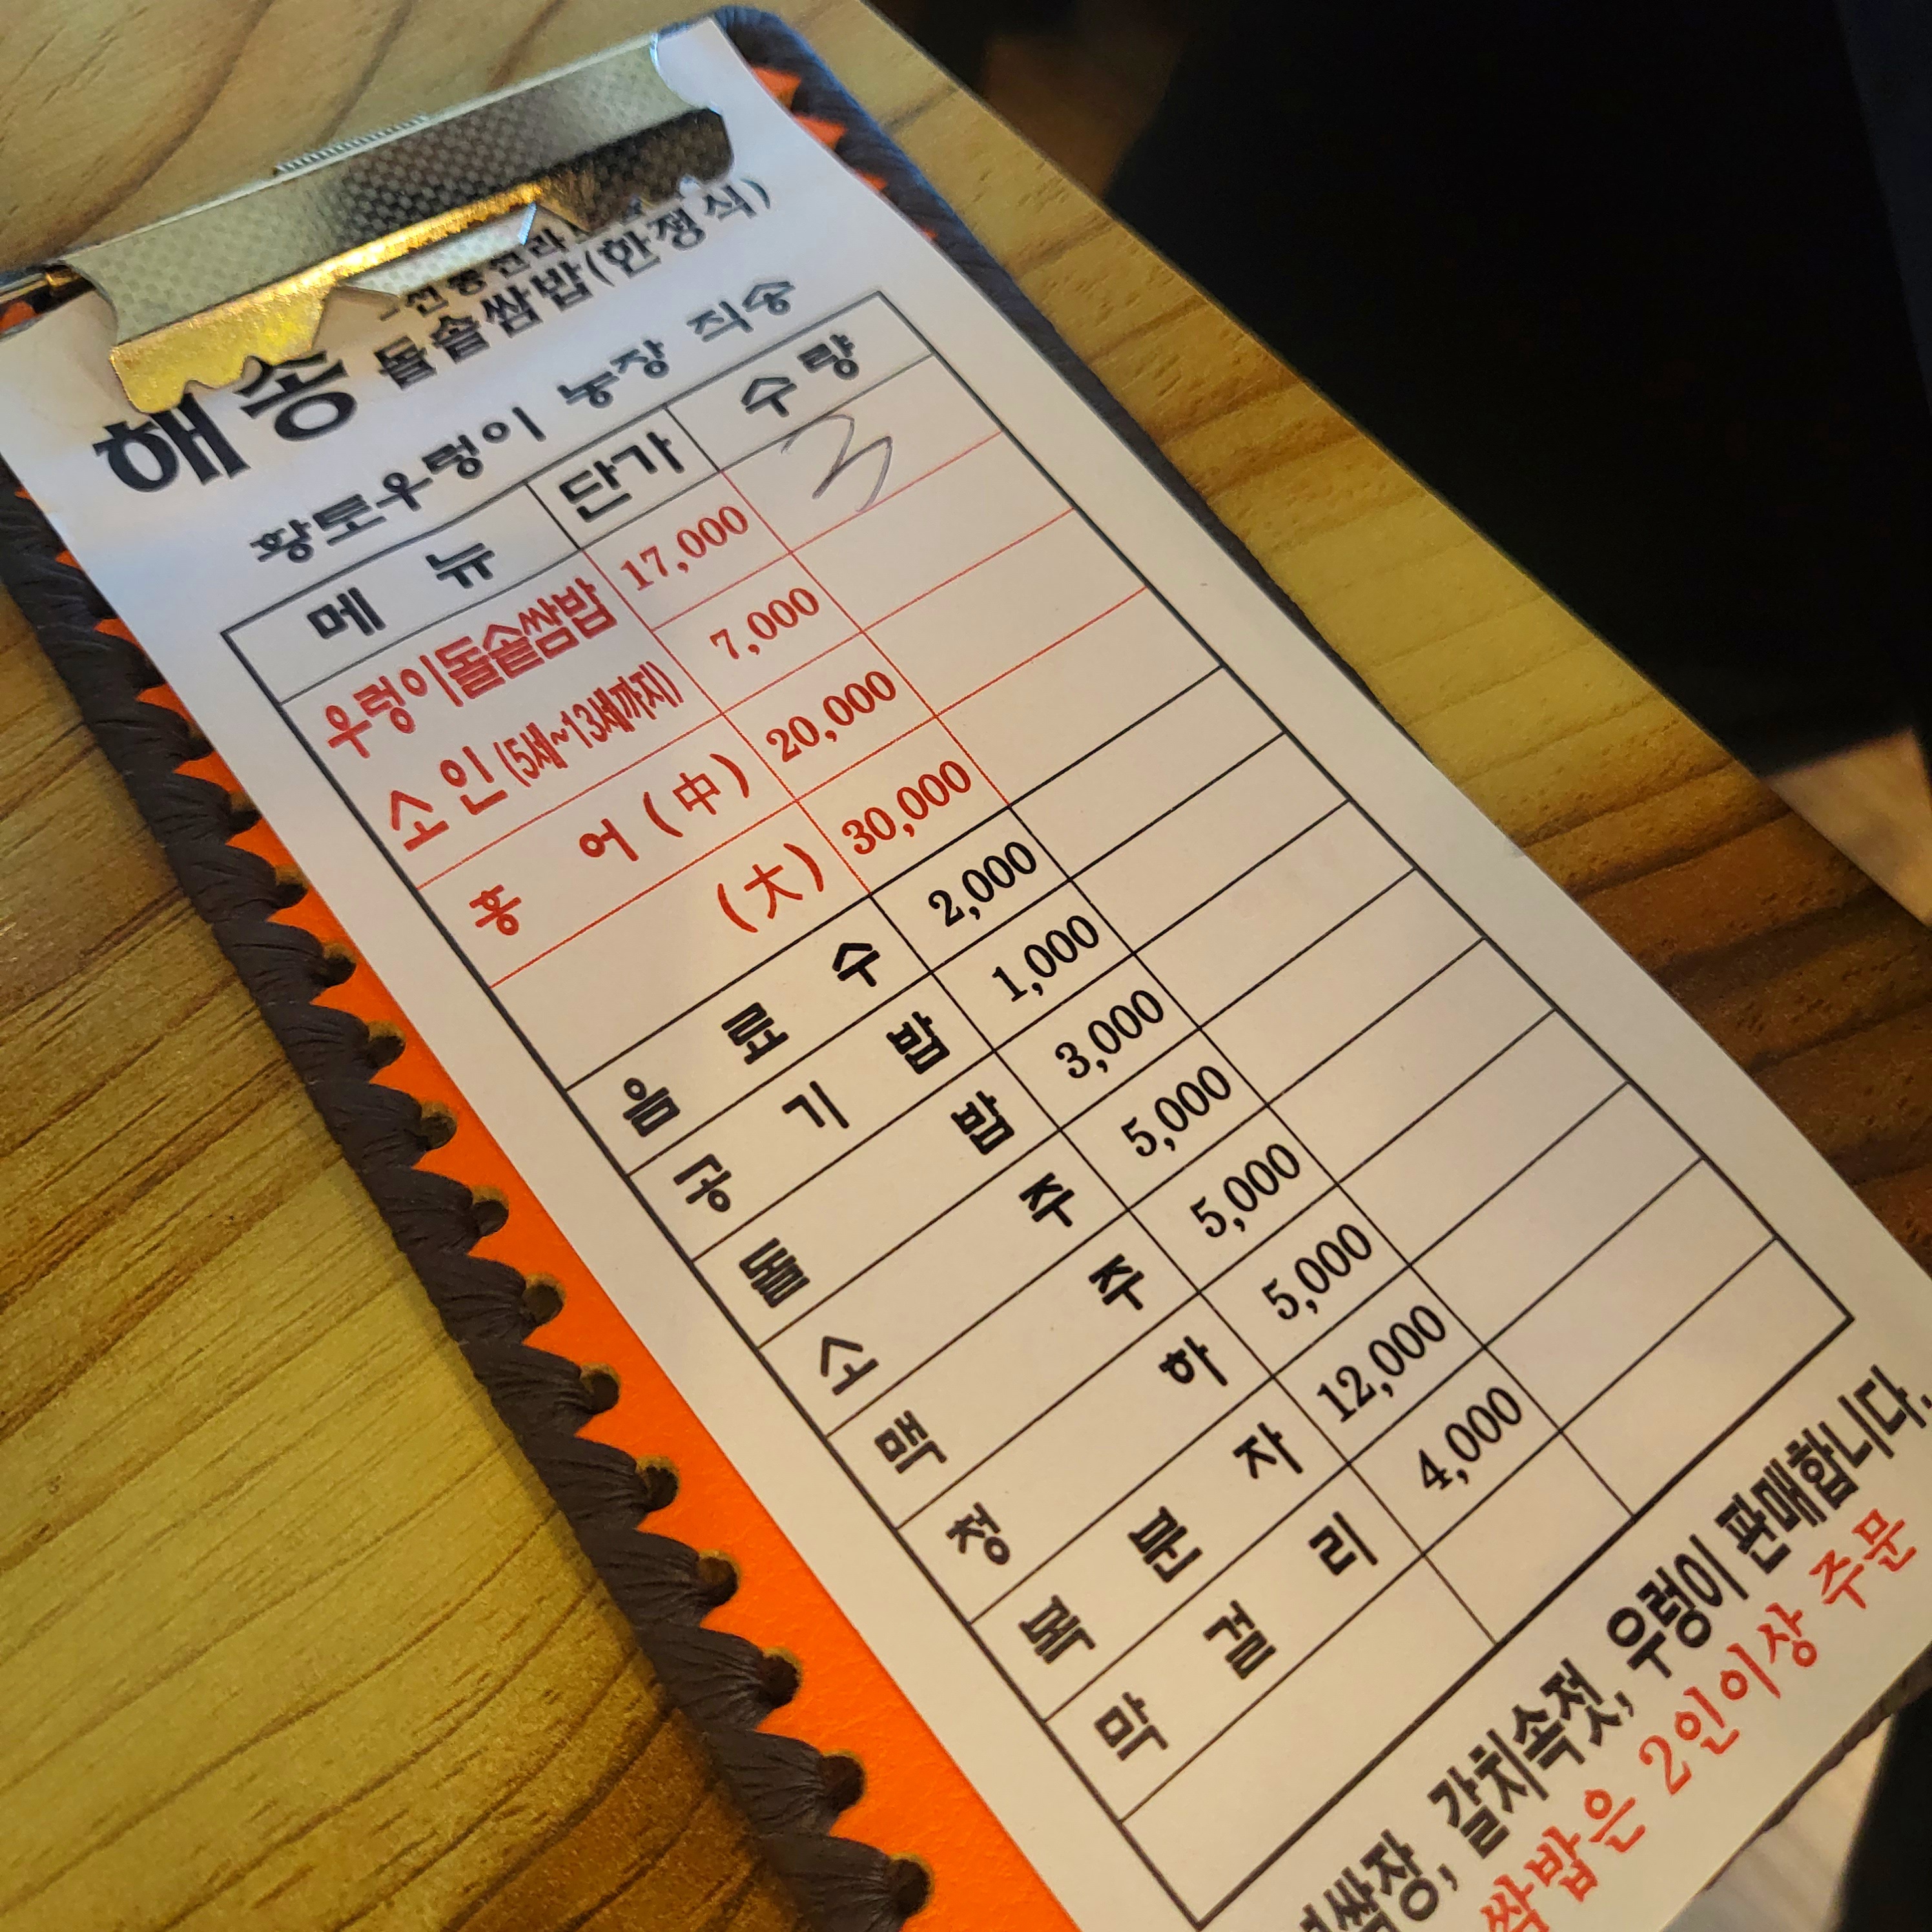 해송 돌솥쌈밥(한정식)
황토우렁이 농장 직송
메 뉴 단가 수량
우렁이돌솥쌈밥 17,000 3
소인(5세~13세까지) 7,000
홍 어 (中) 20,000
(大) 30,000
음 료 수 2,000
공 기 밥 1,000
돌 밥 3,000
소 주 5,000
맥 주 5,000
청 하 5,000
복 분 자 12,000
막 걸 리 4,000
갈치속젓, 우렁이 판매합니다.
쌈밥은 2인이상 주문